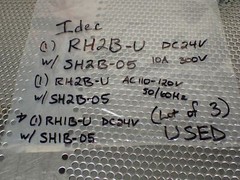 Idec
(1) RH2B-U DC24V
w/ SH2B-05 10A 300V
(1) RH2B-U AC110-120V
w/ SH2B-05 50/60Hz
→ (1) RH1B-U DC24V (Lot of 3)
w/ SH1B-05 USED